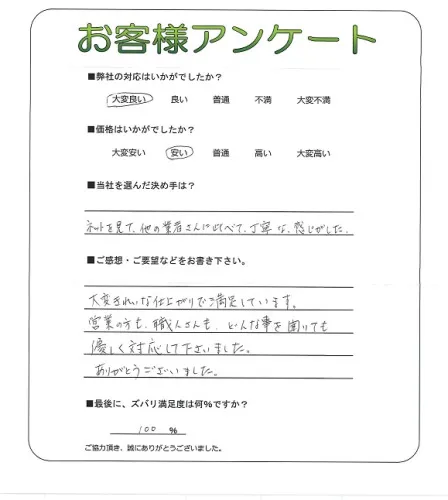 お客様アンケート
■弊社の対応はいかがでしたか?
大変良い 良い 普通 不満 大変不満
■価格はいかがでしたか?
大変安い 安い 普通 高い 大変高い
■当社を選んだ決め手は?
ネットを見て、他の業者さんに比べて、丁寧な、感じがした。
■ご感想・ご要望などをお書き下さい。
大変きれいな仕上がりで満足しています。
営業の方も、職人さんも、どんな事を聞いても
優しく対応して下さいました。
ありがとうございました。
■最後に、ズバリ満足度は何%ですか?
100 %
ご協力頂き、誠にありがとうございました。